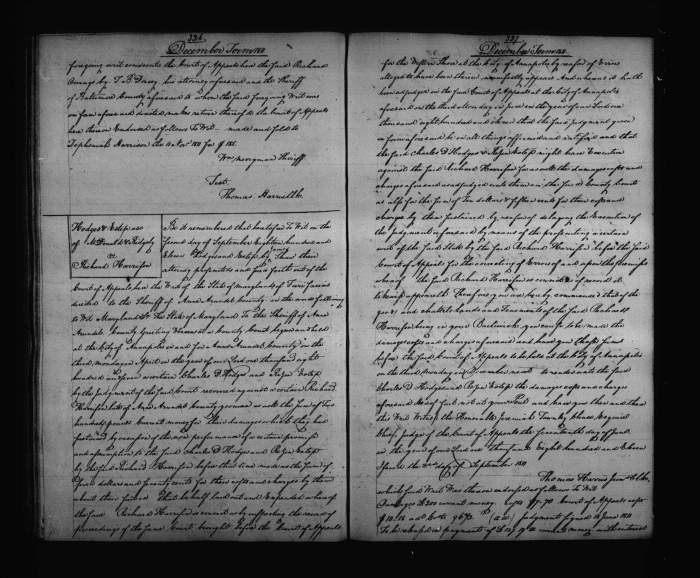 326
December Term 1811
foregoing writ conv the Court of Appeals here the said Richard
by T. B. Dorsey his attorney aforesaid and the Sheriff
of Baltimore County aforesaid to whom the said foregoing Writ was
in form aforesaid directed makes return thereof to the Court of Appeals
here thereon Endorsed as follows To Wit made and sold to
Harrison the
Wm Merryman Sheriff
Test
Thomas Harris Clk
Hodges & Estep use
of McDonald & Ridgely
vs
Richard Harrison
Be it remembered that heretofore To Wit on the
second day of September Eighteen hundred and
Eleven Hodges and Estep by their
attorney prosecuted and sued forth out of the
Court of Appeals here the Writ of the State of Maryland of Fieri facias
directed to the Sheriff of Anne Arundel County in the words following
To Wit Maryland Sct The State of Maryland To the Sheriff of Anne
Arundel County Greeting Whereas in a County Court begun and held
at the City of Annapolis in and for Anne Arundel County on the
third monday in April in the year of our Lord one thousand eight
hundred and certain Charles D Hodges and Estep
by the Judgment of the said Court recovered against a certain Richard
Harrison late of Anne Arundel County as well the Sum of Two
hundred pounds Current money for their damages which they had
sustained by occasion of the non performance of a certain promise
and assumption to the said Charles D Hodges and Estep
by the said Richard Harrison before that time made as the Sum of
dollars and seventy cents for their costs and charges by them
about their suit in that behalf laid out and expended whereof
the said Richard Harrison is convict as by inspecting the record of
proceedings of the same Court brought before the Court of Appeals
327
December Term 1811
for the Western Shore at the City of Annapolis by reason of Error
alleged to have been therein manifestly appears And whereas it hath
been adjudged in the said Court of Appeals at the City of Annapolis
aforesaid on the third Monday in June in the year of our Lord one
thousand eight hundred and eleven that the said judgment given
in form aforesaid be in all things affirmed and and that
the said Charles D Hodges & Estep might have Execution
against the said Richard Harrison for as well the damages costs and
charges aforesaid as adjudged unto them in the said County Court
as also for the Sum of Ten dollars & fifteen cents for their costs and
charges by them sustained by reason of delaying the Execution of
the Judgment aforesaid by means of the prosecuting a certain
writ of the said State by the said Richard Harrison before the said
Court of Appeals for the correcting of Errors of and upon the premises
whereof the said Richard Harrison is convict as of record it
appears &c Therefore you are hereby commanded that of the
goods and chattels lands and Tenements of the said Richard
Harrison being in your Bailiwick you cause to be made the
damages costs and charges aforesaid and have you those sums
before the said Court of Appeals to be held at the City of Annapolis
on the third Monday in December next to render unto the said
Charles D Hodges and Estep the damages costs and charges
aforesaid Hereof fail not at your Peril and have you then and there
this Writ Witness the Honorable Jeremiah Townly Chase Esquire
Chief Judge of the Court of Appeals the Seventeenth day of June
in the year of our Lord one Thousand Eight hundred and Eleven
Issued the 2nd day of September 1811
Thomas Harris Junr Clk
which said Writ Was thereon endorsed as follows To Wit
Damages £200 current money Costs Court of Appeals costs
Judgment signed June 1811
To be released on payment of current money with interest